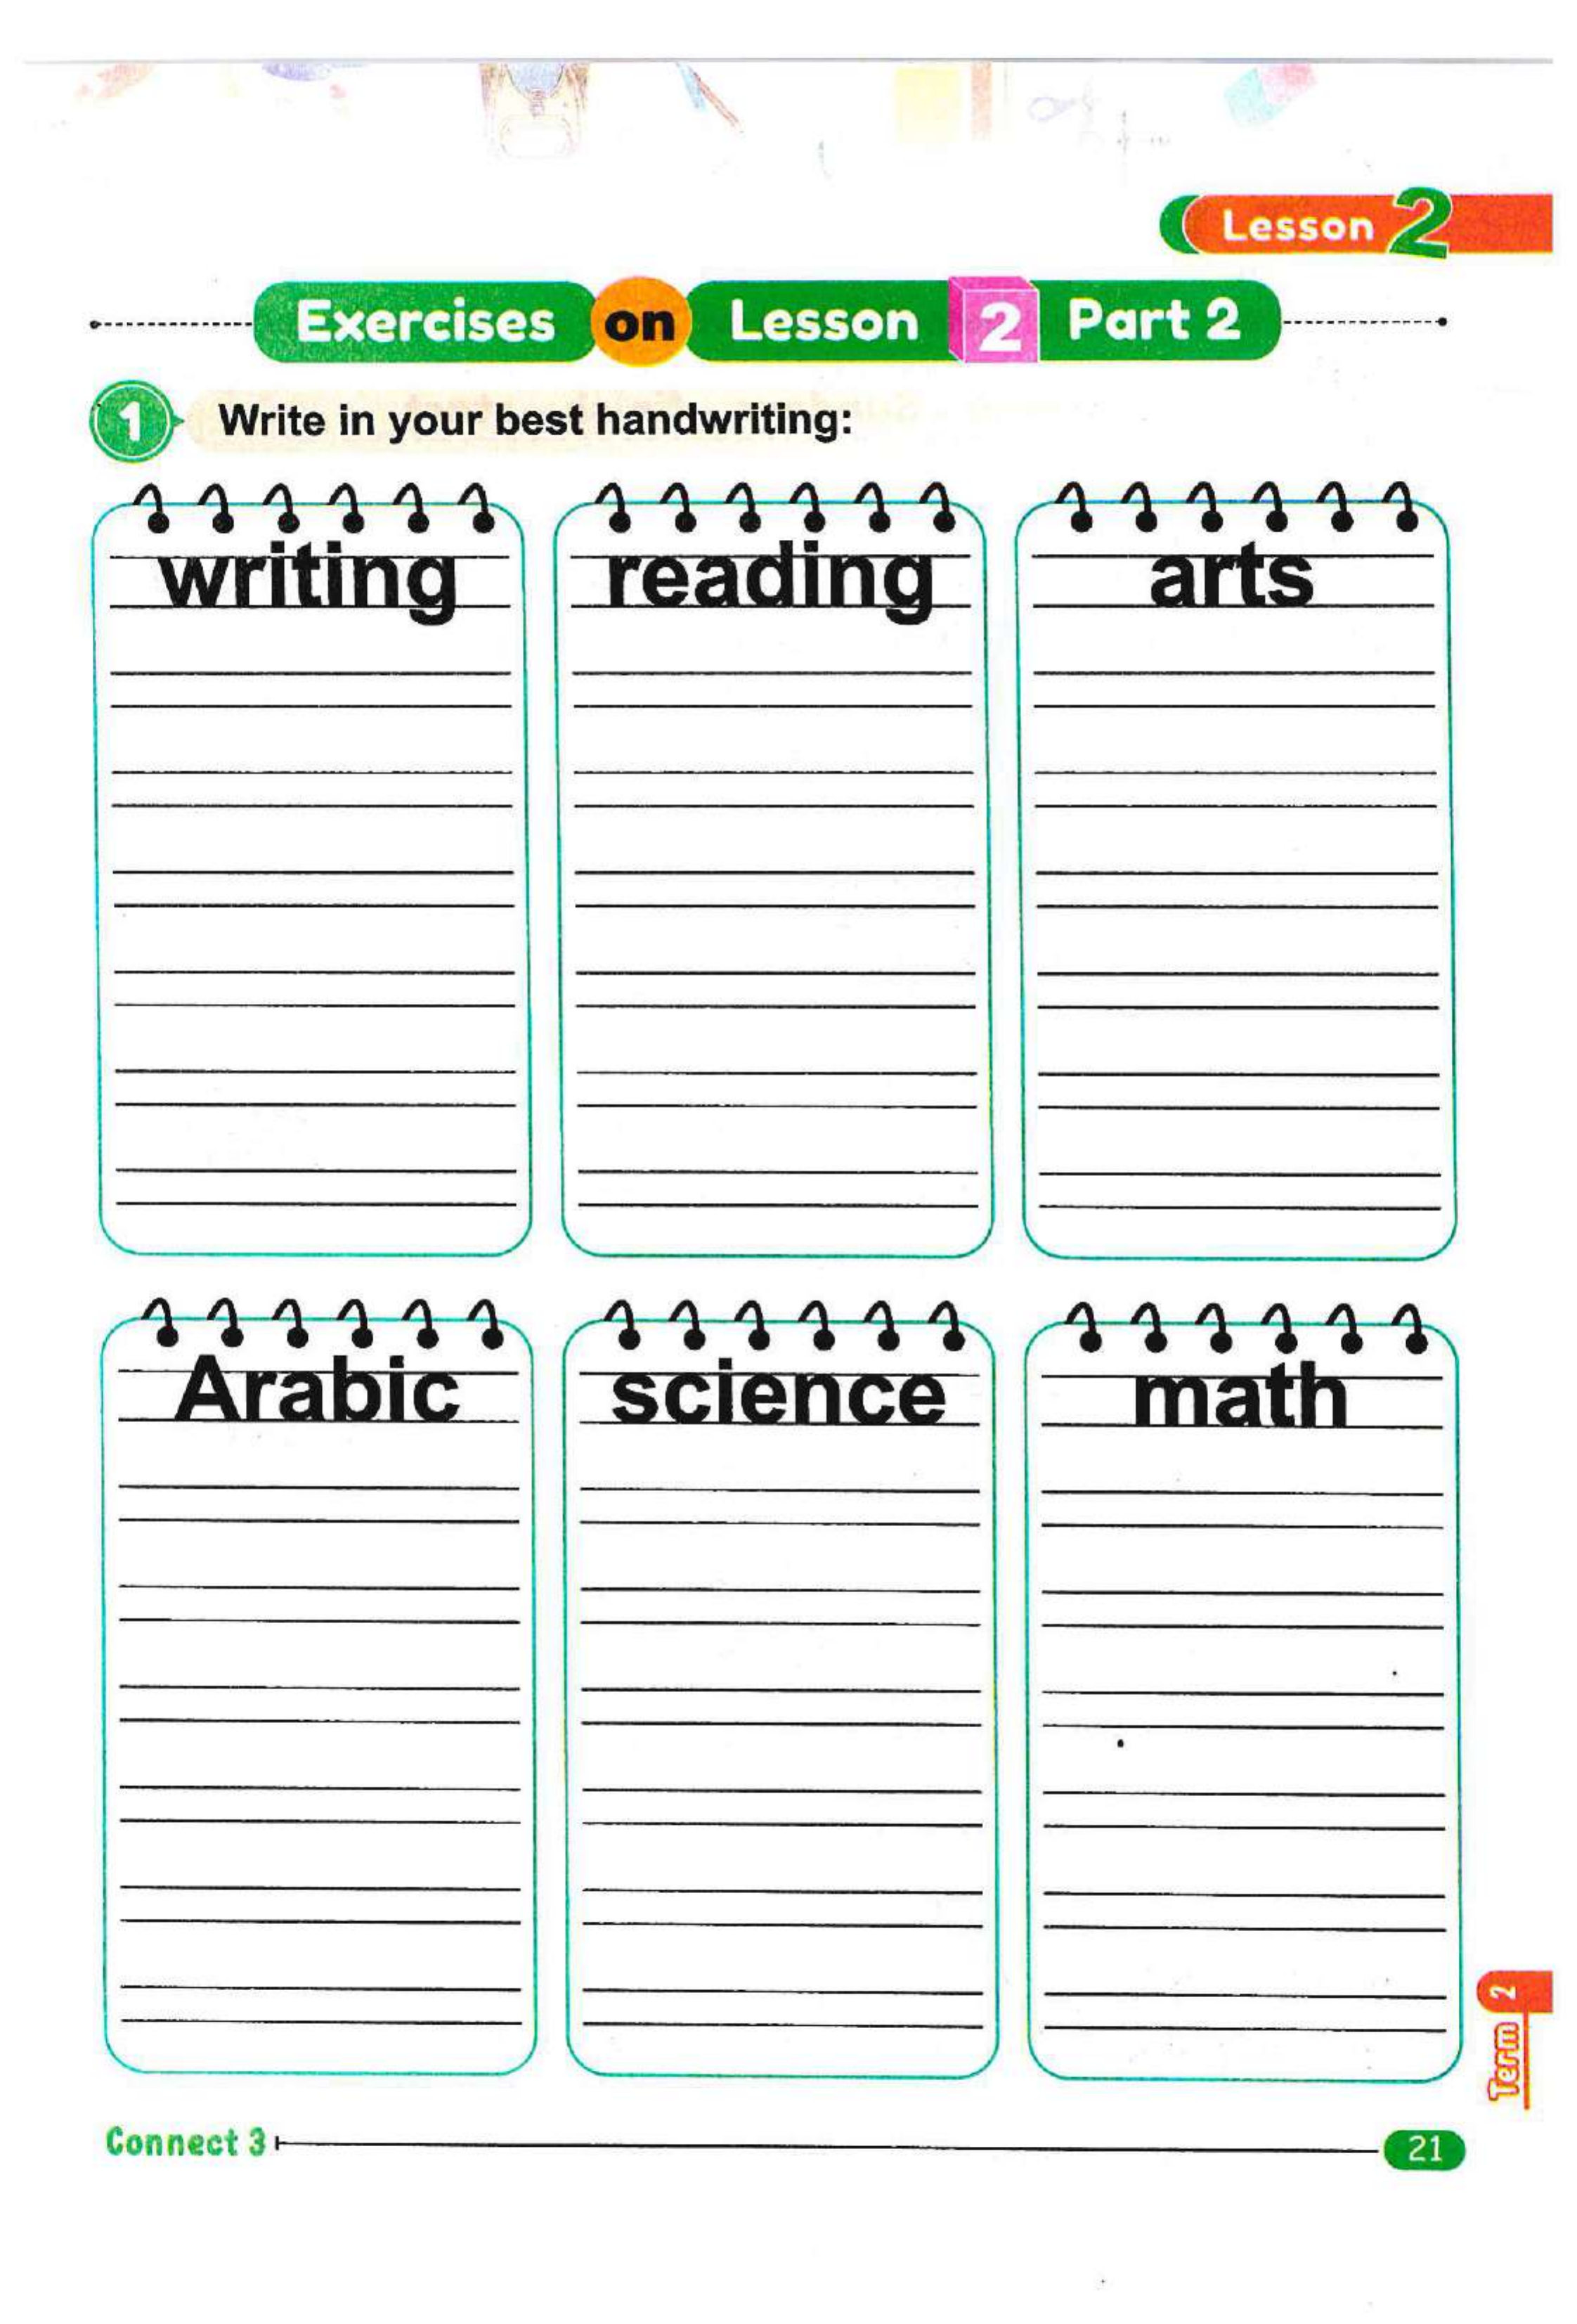 Lesson 2
Exercises on Lesson 2 Part 2
1 Write in your best handwriting:
writing reading arts
Arabic science math
Term 2
Connect 3 21